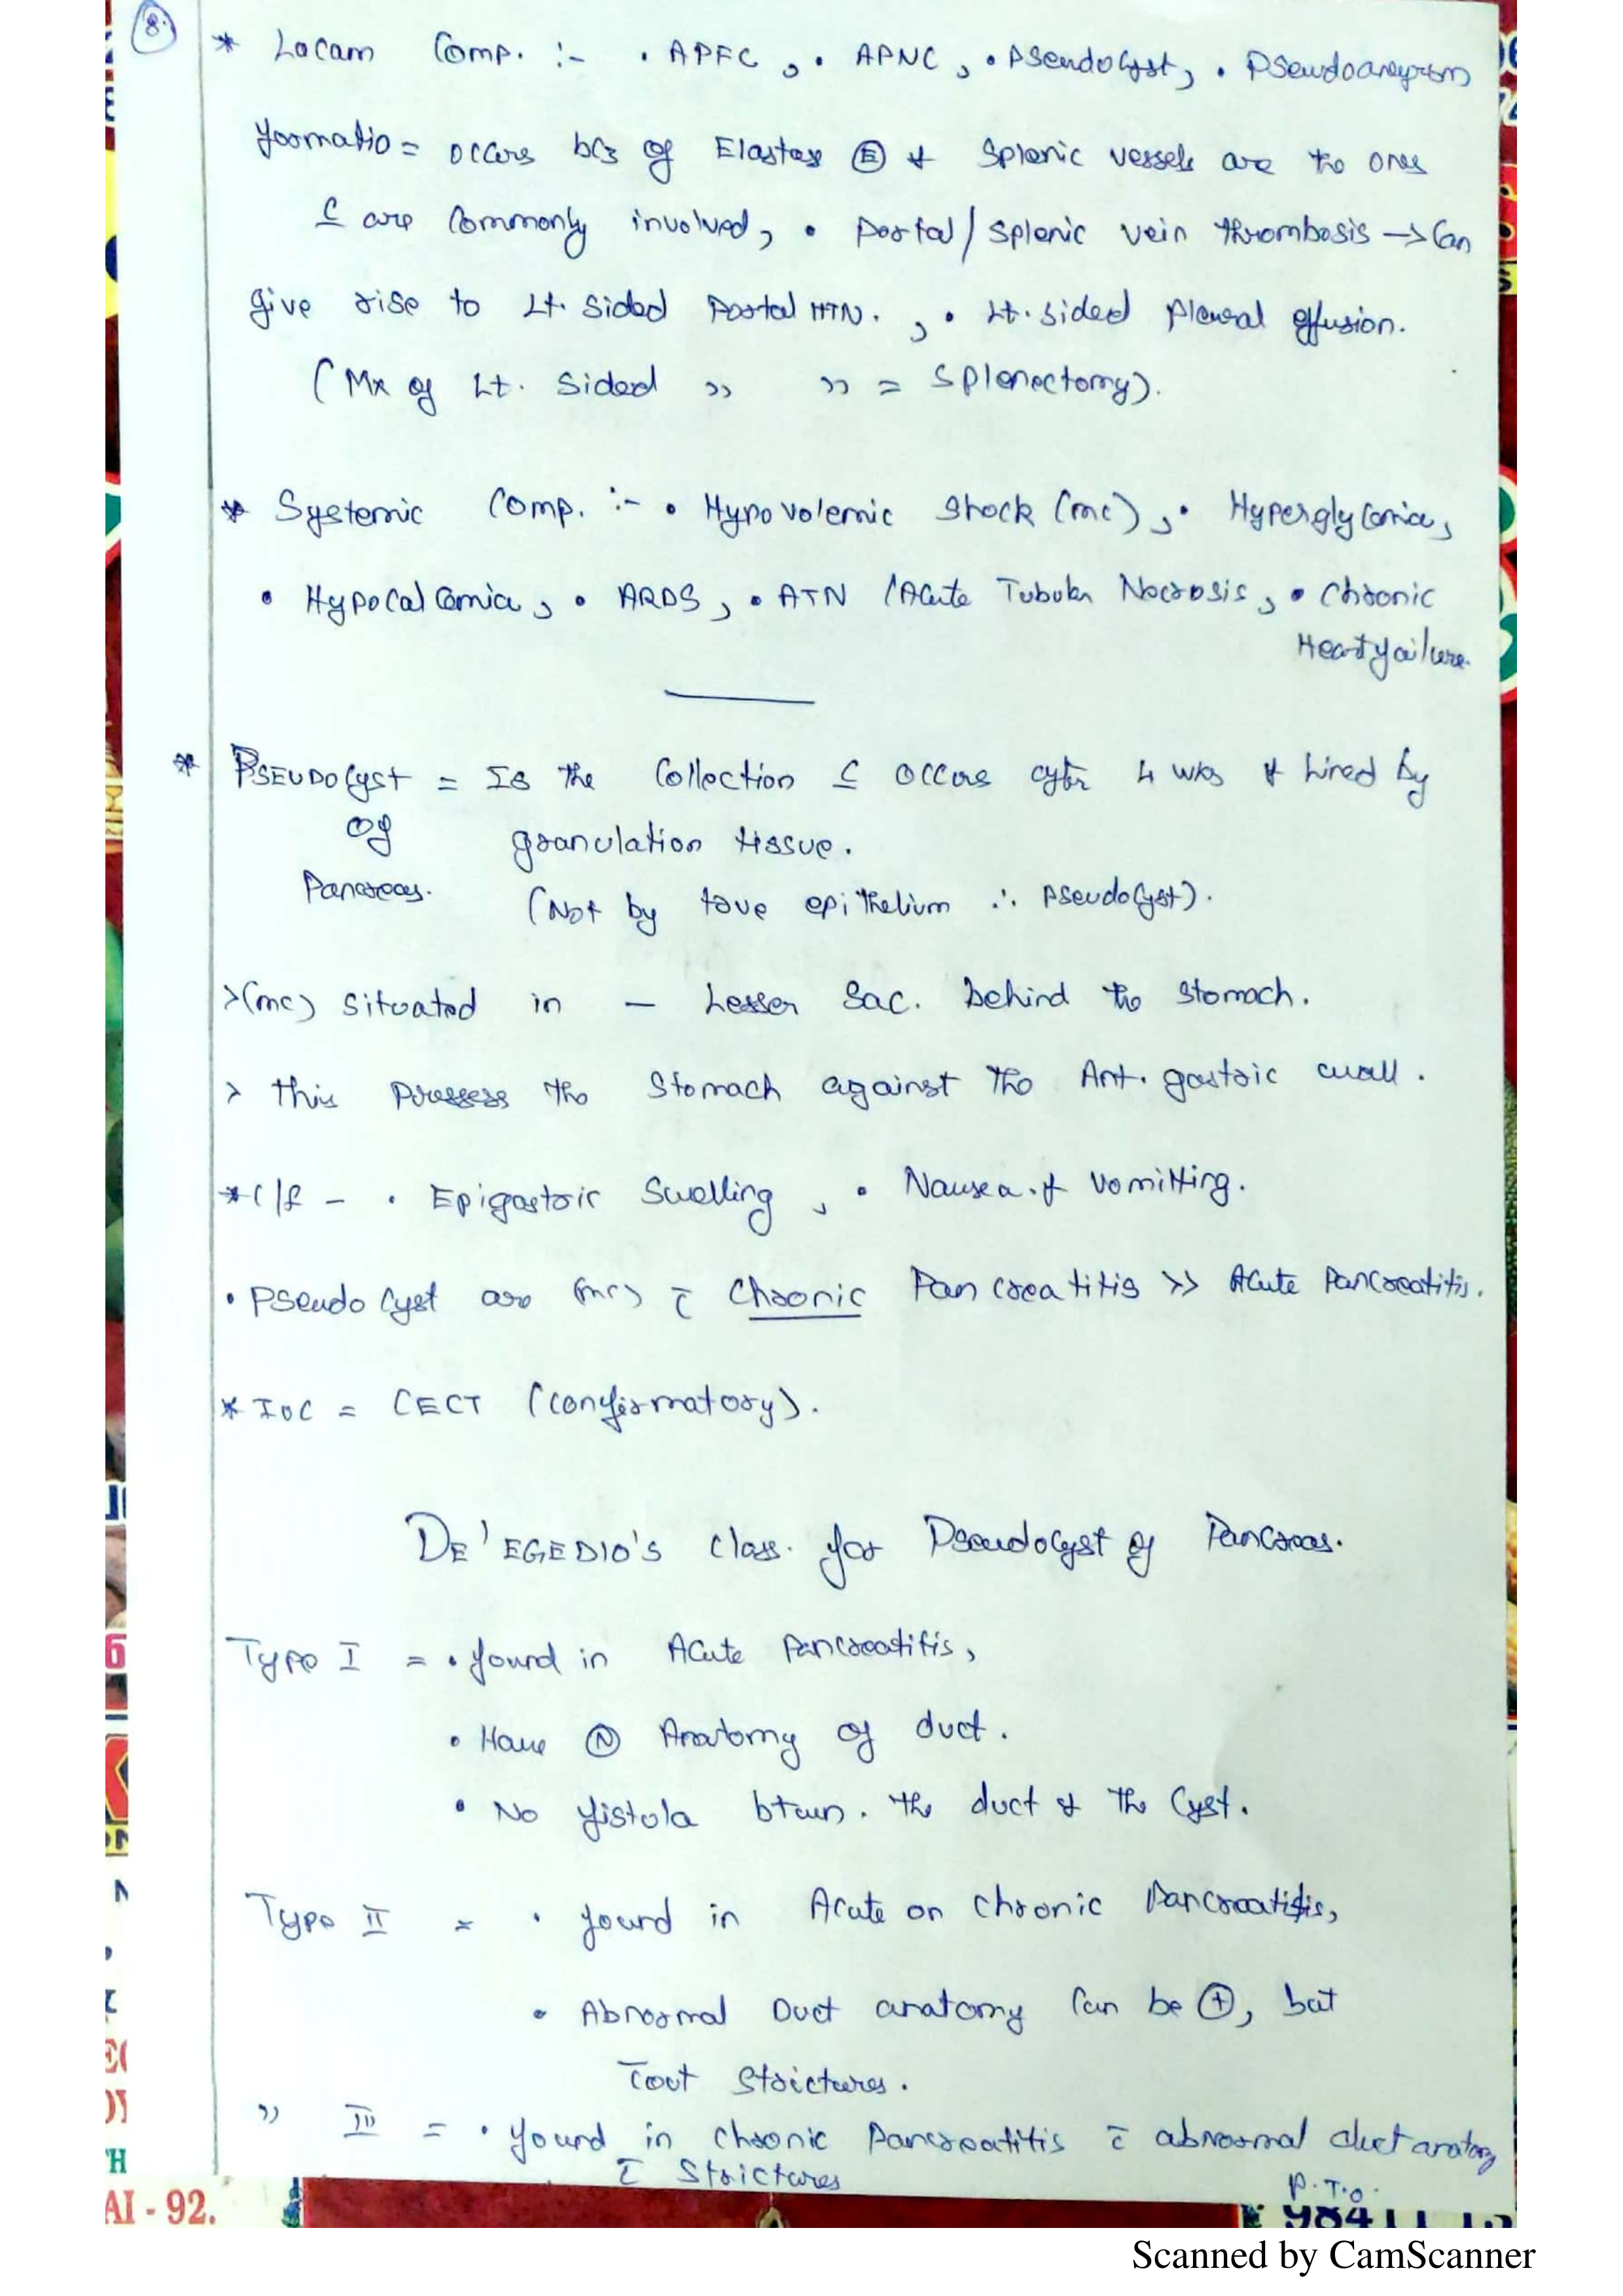 8.
* Locam Comp. :- • APFC, • APNC, • Pseudocyst, • Pseudoaneyrsm
formatio = occurs bcz of Elastase Ⓔ & Splenic vessels are the ones
c̲ are Commonly involved, • Portal/Splenic vein thrombosis → Can
give rise to Lt. Sided Portal HTN., • Lt. sided Pleural effusion.
(Mx of Lt. Sided " " = Splenectomy).
* Systemic Comp. :- • Hypovolemic Shock (mc), • Hyperglycemia,
• Hypocalcemia, • ARDS, • ATN (Acute Tubular Necrosis, • Chronic
Heart failure.
* PSEUDOCyst = Is the Collection c̲ occurs after 4 wks & lined by
of granulation tissue.
Pancreas. (Not by true epithelium ∴ Pseudocyst).
> (mc) situated in - Lesser Sac. behind the stomach.
> this the Stomach against the Ant. gastric wall.
* C/f - • Epigastric Swelling, • Nausea. & Vomitting.
• Pseudo Cyst are (mc) c̄ Chronic Pancreatitis >> Acute Pancreatitis.
* IOC = CECT (confirmatory).
DE'EGEDIO'S Class. for Pseudocyst of Pancreas.
Type I = • found in Acute Pancreatitis,
• Have Ⓝ Anatomy of duct.
• No fistula btwn. the duct & the Cyst.
Type II = • found in Acute on Chronic Pancreatitis,
• Abnormal Duct anatomy Can be ⊕, but
c̄out Strictures.
" III = • found in chronic Pancreatitis c̄ abnormal duct anatomy
c̄ Strictures
P.T.O.
AI - 92.
Scanned by CamScanner